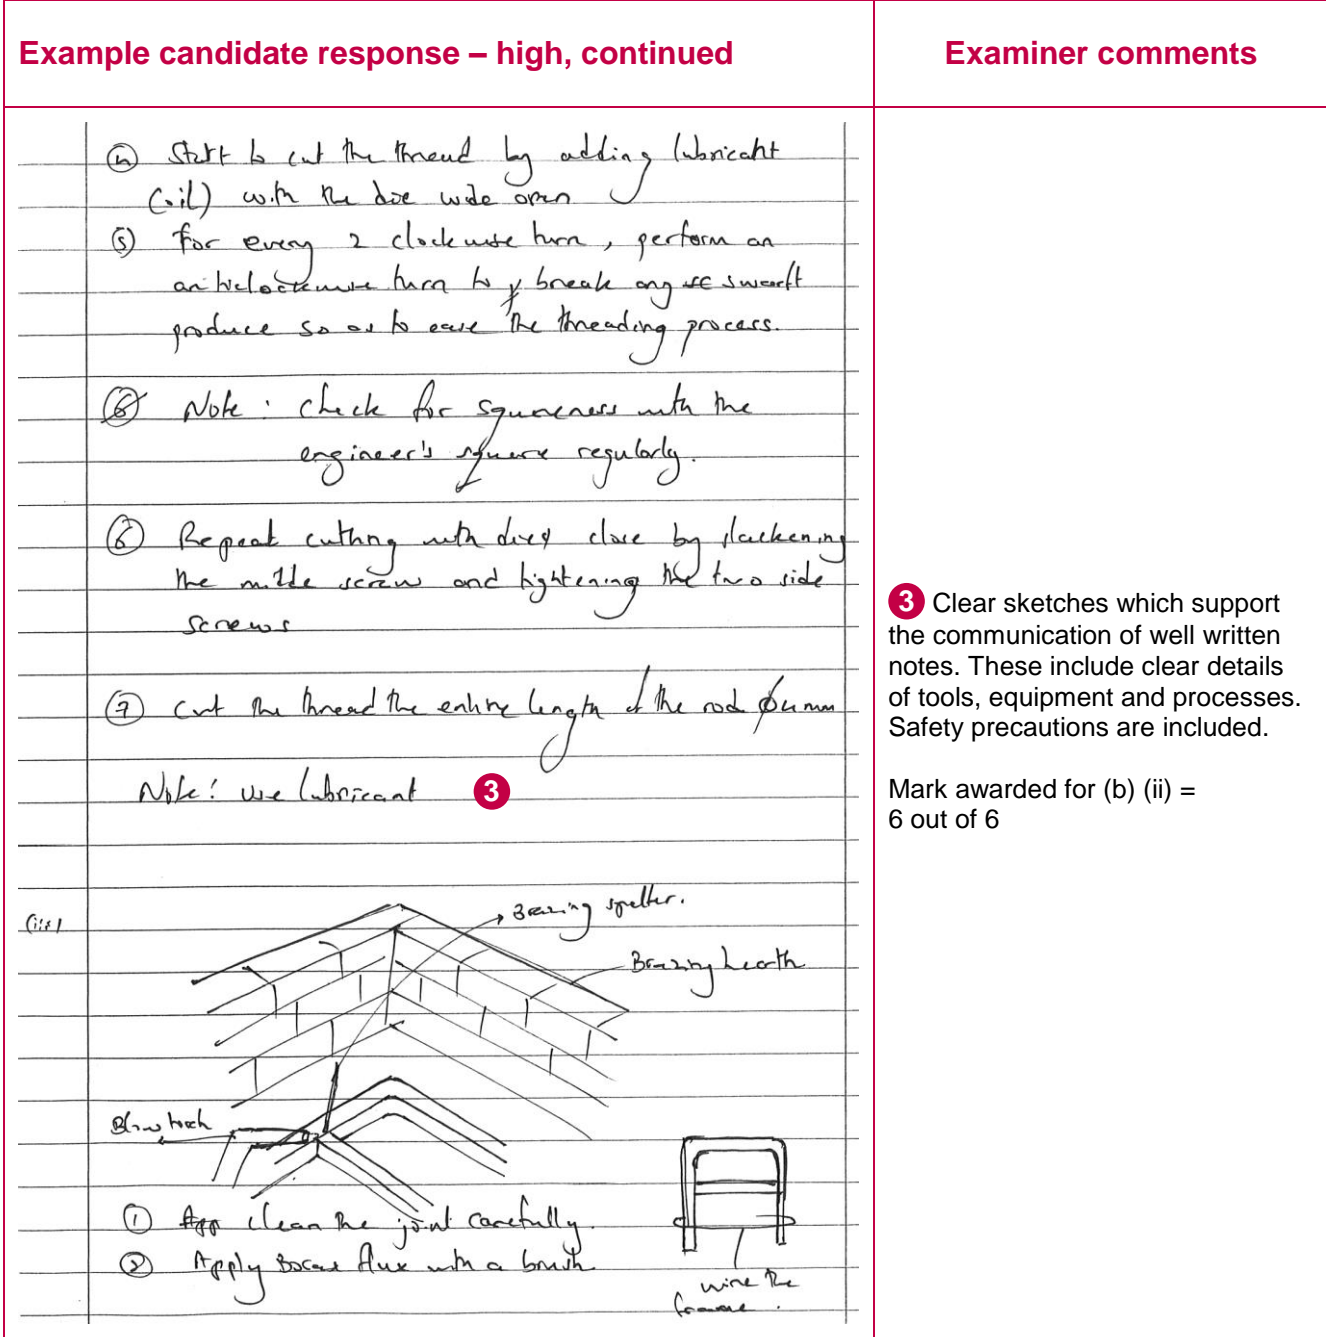 Example candidate response – high, continued
Examiner comments
④ Start to cut the thread by adding lubricant
(oil) with the die wide open
⑤ For every 2 clockwise turn, perform an
anticlockwise turn to break any swarf
produce so as to ease the threading process.
⑥ Note: check for squareness with the
engineer's square regularly.
⑥ Repeat cutting with die close by slackening
the middle screw and tightening the two side
screws
⑦ Cut the thread the entire length of the rod
Note: use lubricant 3
(iii)
Brazing spelter.
Brazing hearth
Blow torch
① clean the joint carefully.
② Apply Borax flux with a brush
wire the
frame.
3 Clear sketches which support
the communication of well written
notes. These include clear details
of tools, equipment and processes.
Safety precautions are included.
Mark awarded for (b) (ii) =
6 out of 6